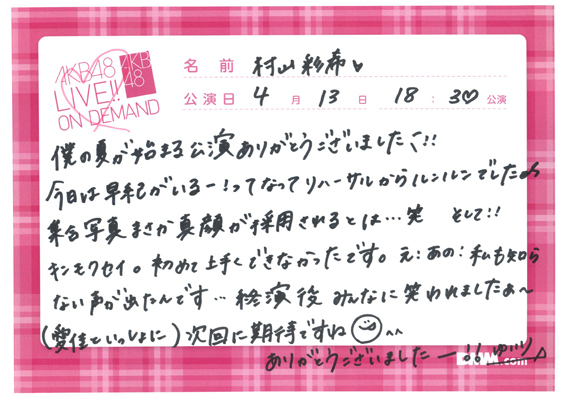 AKB48
LIVE!!
ON DEMAND
AKB
48
名前 村山彩希♥
公演日 4月13日 18:30公演
僕の夏が始まる公演ありがとうございました!!
今日は早紀がいるー!ってなってリハーサルからルンルンでした
集合写真まさか真顔が採用されるとは…笑 そして!!
キンモクセイ。初めて上手くできなかったです。え:あの:私も知ら
ない声が出たんです…終演後みんなに笑われましたぁ〜
(愛佳といっしょに)次回に期待ですね ^^
ありがとうございましたー!! ゆいり
.com